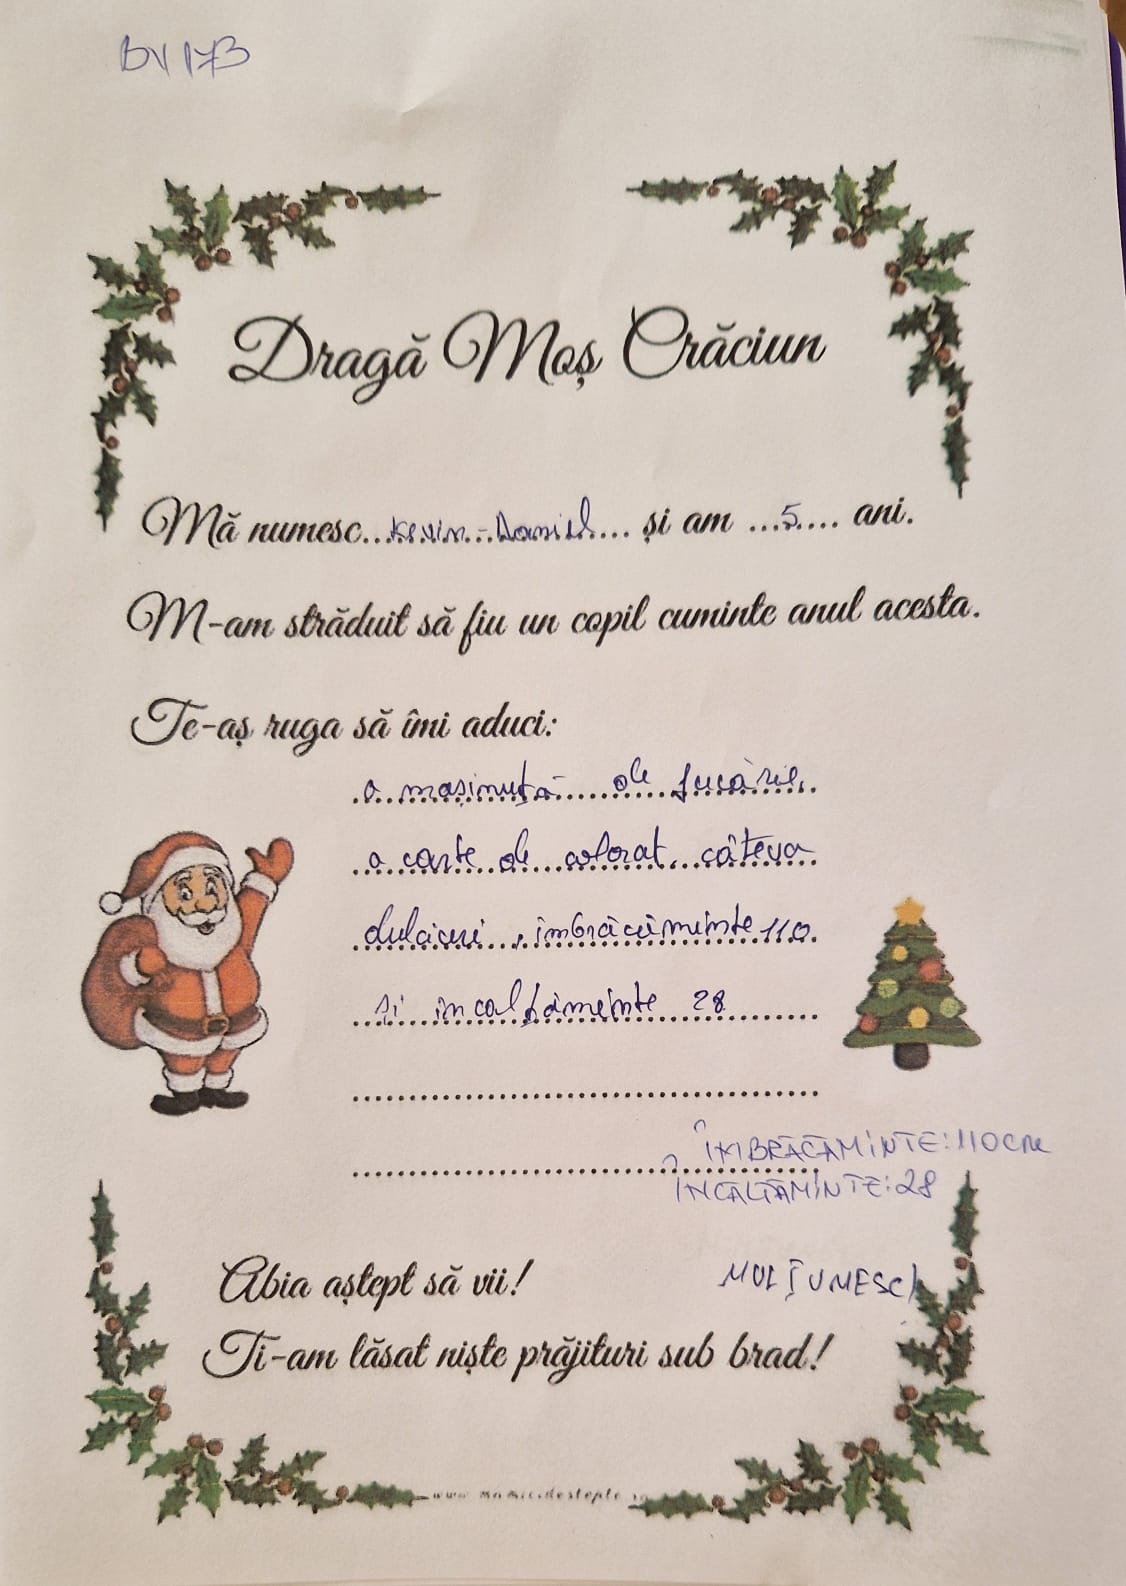 BV 173
Dragă Moș Crăciun
Mă numesc...Kevin-Daniel... și am ...5.... ani.
M-am străduit să fiu un copil cuminte anul acesta.
Te-aș ruga să îmi aduci:
o mașinuță de jucărie,
o carte de colorat, câteva
dulciuri, îmbrăcăminte 110
și incalțăminte 28
ÎMBRĂCĂMINTE: 110 cm
ÎNCĂLȚĂMINTE: 28
Abia aștept să vii!
MULȚUMESC!
Ti-am lăsat niște prăjituri sub brad!